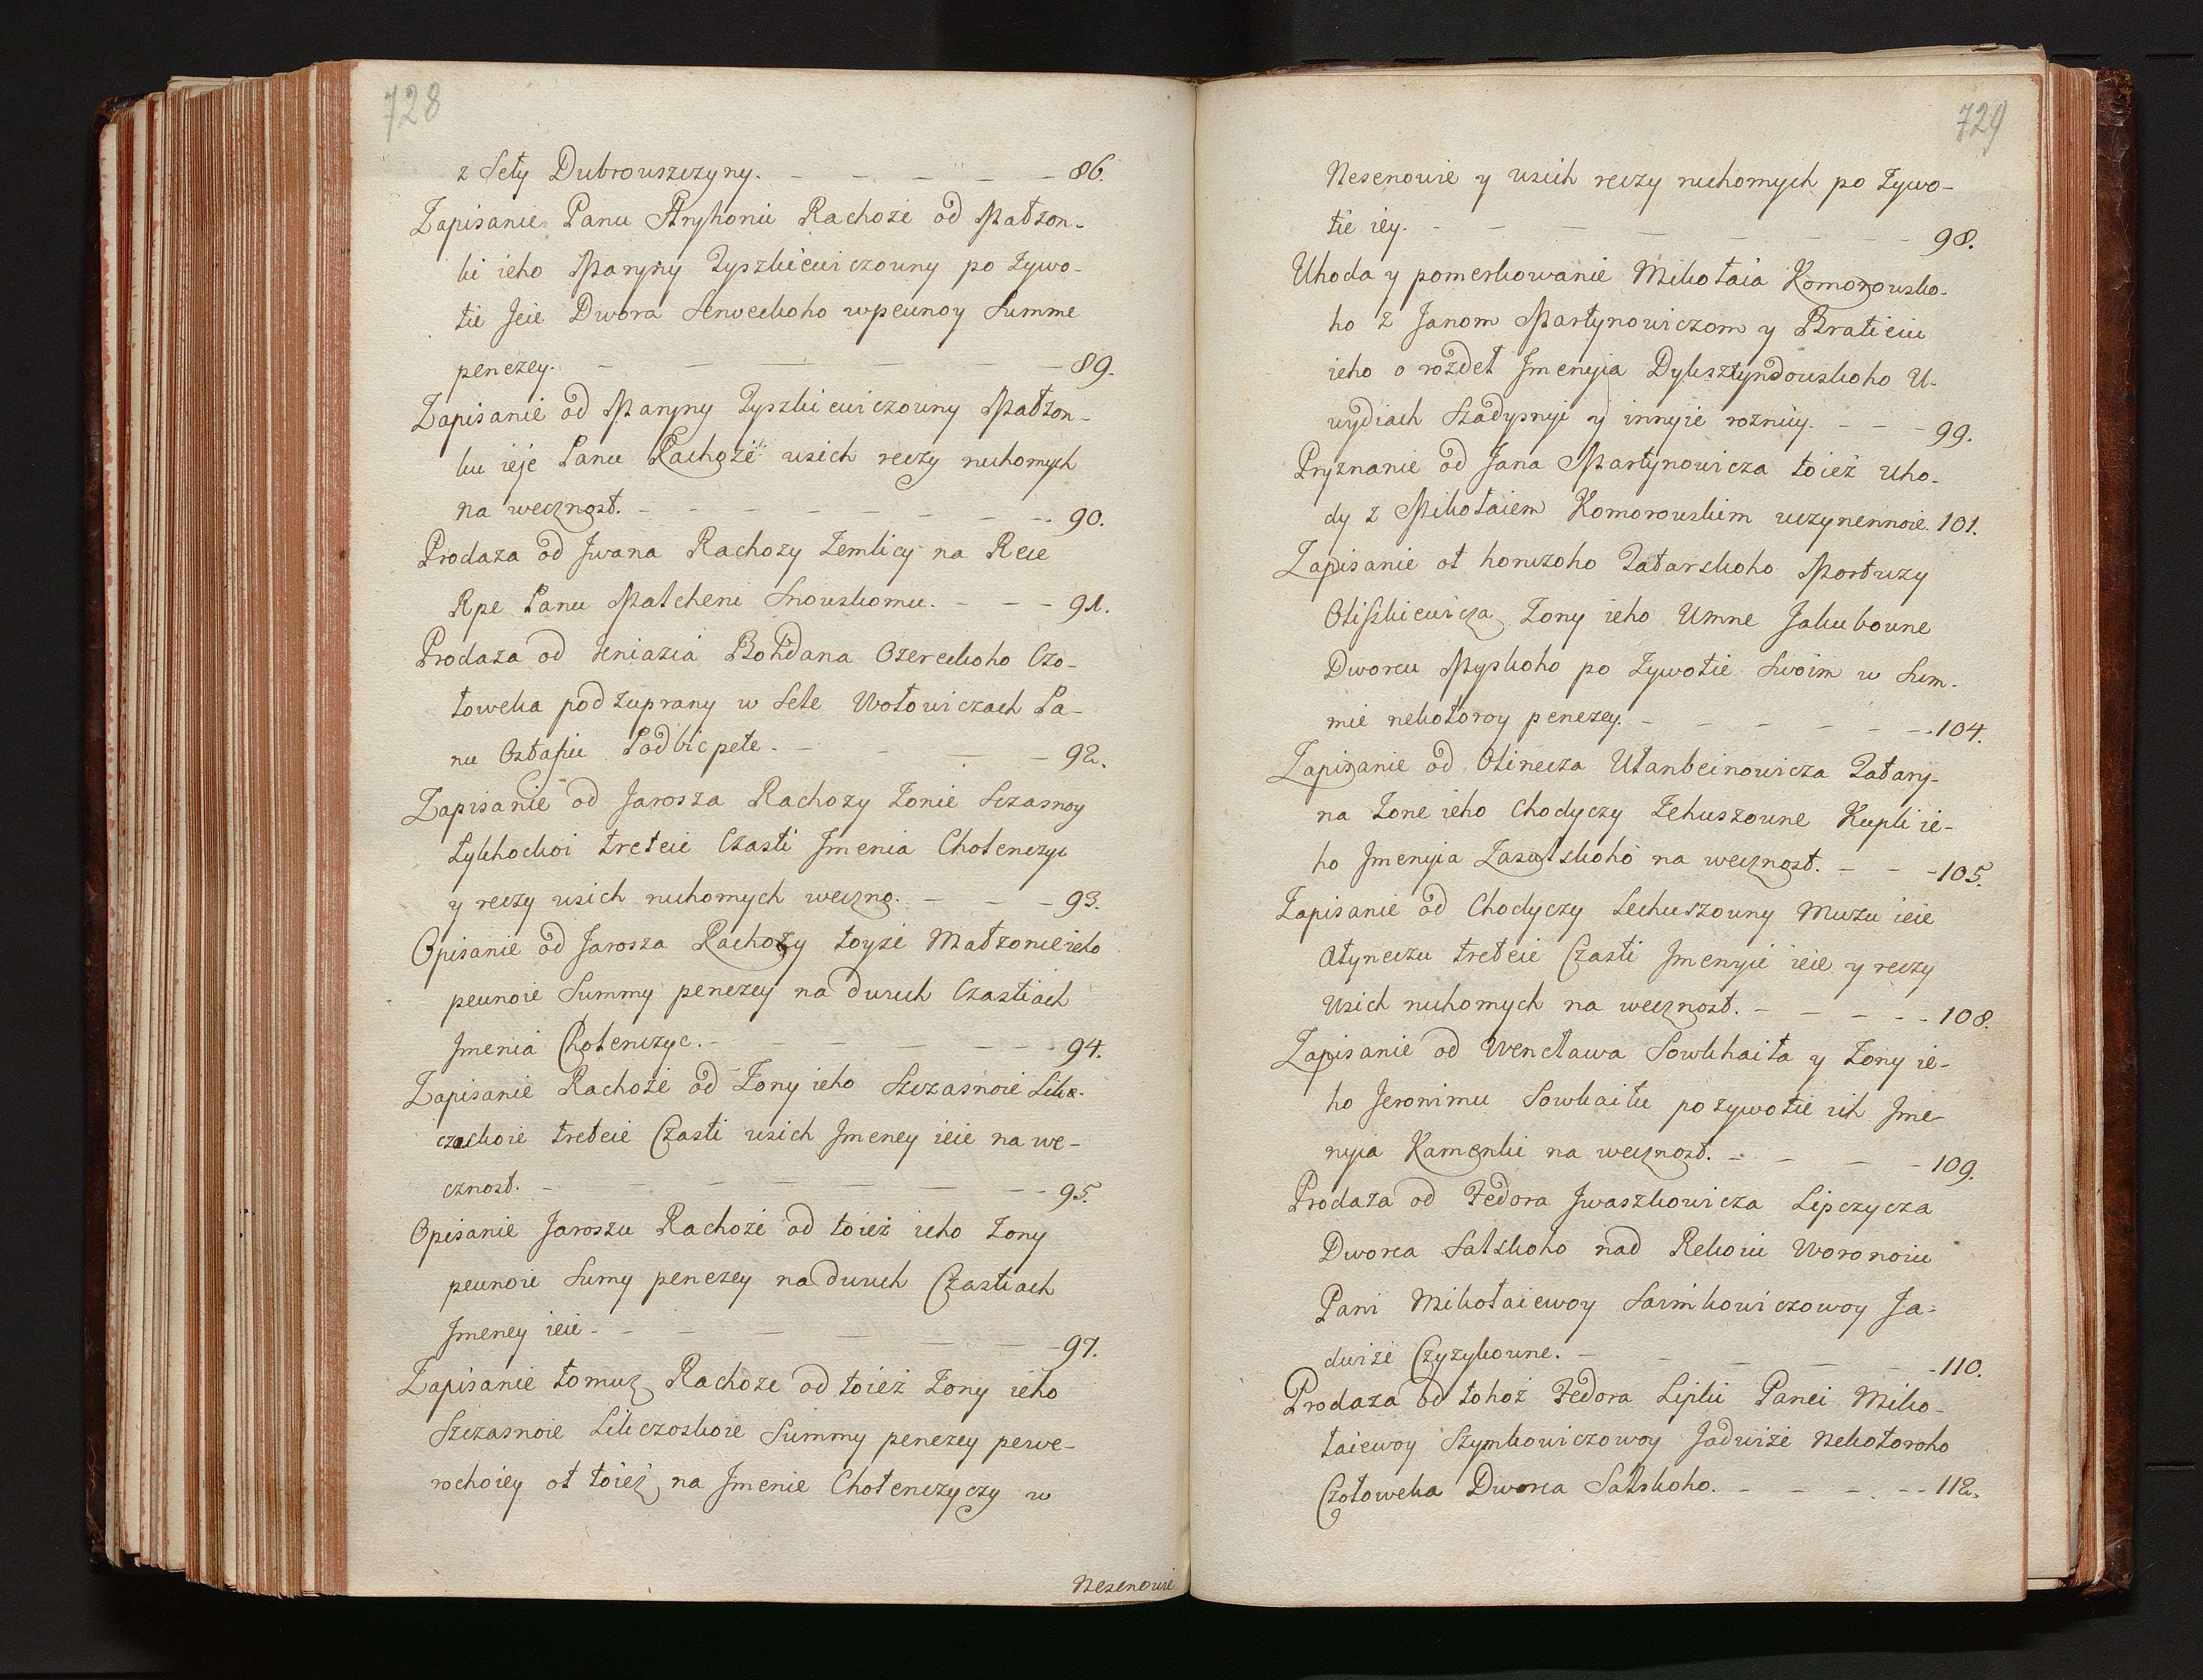 728
z Seły Dubrowszczyny. - - - - - - 86.
Zapisanie Panu Stryhoniu Rachoże od Małżon-
ki ieho Maryny Tyszkiewiczowny po żywo-
tie Jeie Dwora Serweckoho w pewnoy Summe
penezey. - - - - - - 89.
Zapisanie od Maryny Tyszkiewiczowny Małżon-
ku ieje Panu Rachoże wsich reczy ruchomych
na wecznost. - - - - - - - - 90.
Prodaża od Jwana Rachozy Zemlicy na Rece
Rpe Panu Malcheru Snowskomu. - - - 91.
Prodaża od Kniazia Bohdana Ozereckoho Czo-
łoweka pod Zuprany w Sele Wołowiczach Pa-
nu Ostafiu Podbiepete. - - - - 92.
Zapisanie od Jarosza Rachozy Żonie Sczasnoy
Łykhockoi treteie Czasti Jmenia Chotenczyc
y reczy wsich ruchomych weczno. - - - 93.
Opisanie od Jarosza Rachozy toyże Małżonie ieho
pewnoie Summy penezey na dwuch Czastiach
Jmenia Chotenczyc. - - - - - - - 94.
Zapisanie Rachoże od Żony ieho Szczasnoie Lika-
czockoie treteie Czasti wsich Jmeney ieie na we-
cznost. - - - - - - - - 95.
Opisanie Jaroszu Rachoże od toież ieho Żony
pewnoie Sumy penezey na dwuch Czastiach
Jmeney ieie - - - - - - - 97.
Zapisanie tomuż Rachoze od toież Żony ieho
Szczasnoie Likczoskoie Summy penezey perwe-
rochoiey ot toież na Jmenie Chotenczyczy w
Nesenowie
729
Nesenowie y wsich reczy ruchomych po żywo-
tie iey. - - - - - - - - 98.
Uhoda y pomerkowanie Mikołaia Komorowsko-
ho z Janom Martynowiczom y Bratieiu
ieho o rozdeł Jmenyia Dyksztyndowskoho U-
wydiach Szadysnyi y innyie roznuy. - - - 99.
Pryznanie od Jana Martynowicza toież Uho-
dy z Mikołaiem Komorowskim uczynennoie. 101.
Zapisanie ot horuzoho Tatarskoho Mortuzy
Oliszkiewicza Żony ieho Umne Jakubowne
Dworcu Myskoho po Żywotie Swoim w Sum-
mie nekotoroy penezey. - - - - - - 104.
Zapisanie od Olinecza Ułanbeinowicza Tatary-
na Żone ieho Chodyczy Lehuszowne Kupli ie-
ho Jmenyia Zasulskoho na wecznost. - - - 105.
Zapisanie od Chodyczy Lechuszowny Mużu ieie
Atyneczu treteie Czasti Jmenyie ieie y reczy
Wsich ruchomych na wecznost. - - - - - 108.
Zapisanie od Wencława Sowkhaiła y Żony ie-
ho Jeronimu Sowkaitu po żywotie ich Jme-
nyia Kamenki na wecznost. - - - - 109.
Prodaża od Fedora Jwaszkowicza Lipczycza
Dworca Salskoho nad Rekoiu Woronoiu
Pani Mikołaiewoy Saimkowiczowoy Ja-
dwiże Czyzykowne. - - - - - - 110.
Prodaża od tohoż Fedora Lipki Panei Miko-
łaiewoy Szymkowiczowoy Jadwiże Nekotoroho
Czołoweka Dworca Salskoho. - - - - - 112.